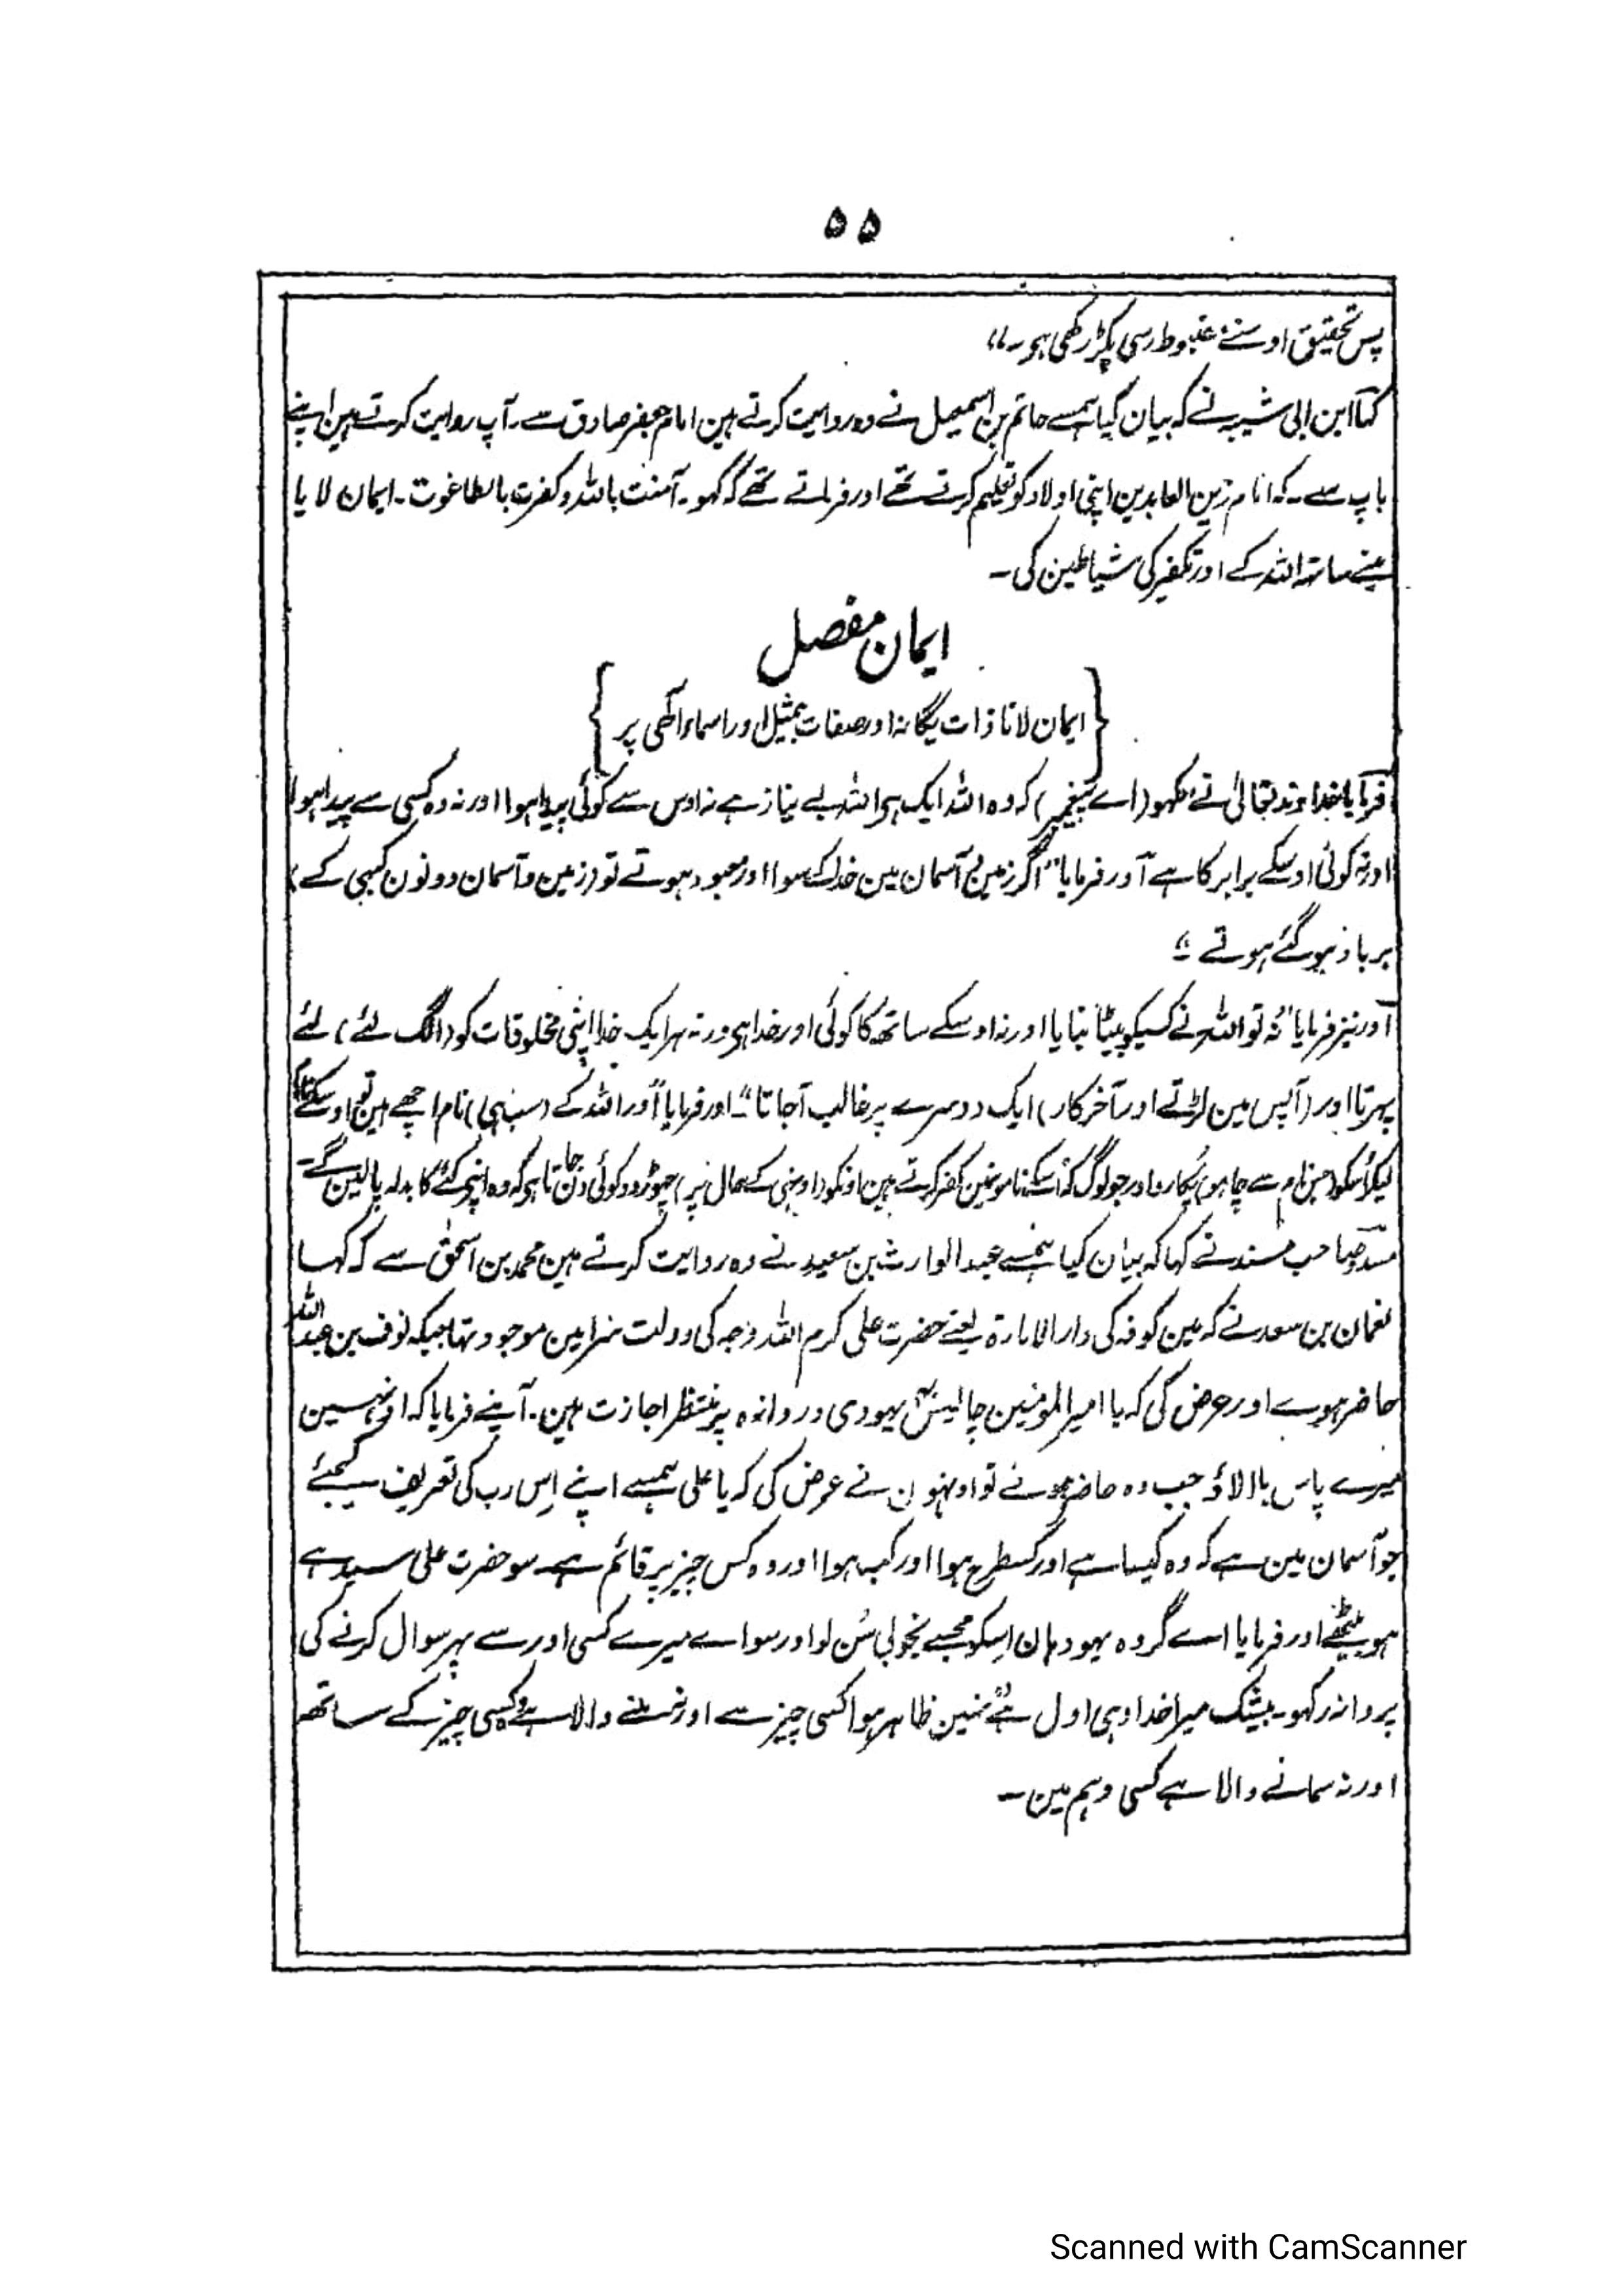 ۵۵
پس تحقیق اوسنے مضبوط رسی پکڑ رکھی ہو۔"
کہا ابن ابی شیبہ نے کہ بیان کیا ہمسے حاتم بن اسمٰعیل نے وہ روایت کرتے ہین امام جعفر صادق سے۔ آپ روایت کرتے ہین اپنے
باپ سے۔ کہ امام زین العابدین اپنی اولاد کو تعلیم کرتے تھے اور فرماتے تھے کہ کہو۔ آمنت باللہ وکفرت بالطاغوت۔ ایمان لایا
مینے ساتہ اللہ کے اور تکفیر کی شیاطین کی۔
ایمان مفصل
{ ایمان لانا ذات یگانہ اور صفات بمثیل اور اسماء الٰہی پر }
فرمایا خداوند تعالیٰ نے "کہو (اے پیغمبر) کہ وہ اللہ ایک ہی اللہ بے نیاز ہے نہ اوس سے کوئی پیدا ہوا اور نہ وہ کسی سے پیدا ہوا
اور نہ کوئی اوسکے برابر کا ہے" اور فرمایا "اگر زمین آسمان مین خدا کے سوا اور معبود ہوتے تو (زمین و آسمان دونون کبھی کے)
برباد ہو گئے ہوتے"
اور نیز فرمایا "نہ تو اللہ نے کسیکو بیٹا بنایا اور نہ اوسکے ساتھ کا کوئی اور خدا ہی ورنہ ہر ایک خدا اپنی مخلوقات کو (الگ لئے) لئے
پہرتا اور (آپس مین لڑتے اور آخرکار) ایک دوسرے پر غالب آجاتا" اور فرمایا "اور اللہ کے (سب ہی) نام اچھے ہین تو اوسکے نام
لیکر اُسکو (جس نام سے چاہو) پکارو اور جو لوگ کہ اُسکے نامونمین کفر کرتے ہین اونکو (اونہی کے حال پر) چھوڑ دو کوئی دن جاتا ہی کہ وہ اپنے کئے کا بدلہ پا لینگے۔
مسدد صاحب مسند نے کہا کہ بیان کیا ہمسے عبد الوارث بن سعید نے وہ روایت کرتے ہین محمد بن اسحٰق سے کہ کہا
نعمان بن سعد نے کہ مین کوفہ کی دارالامارۃ یعنے حضرت علی کرم اللہ وجہ کی دولت سرا مین موجود تہا جبکہ نوف بن عبد اللہ
حاضر ہوے اور عرض کی کہ یا امیر المومنین چالیس یہودی دروازہ پر منتظر اجازت ہین۔ آپنے فرمایا کہ اونہین
میرے پاس بلا لاؤ جب وہ حاضر ہوئے تو اونہون نے عرض کی کہ یا علی ہمسے اپنے اِس رب کی تعریف کیجئے
جو آسمان مین ہے کہ وہ کیسا ہے اور کسطرح ہوا اور کب ہوا اور وہ کس چیز پر قائم ہے۔ سو حضرت علی سیدہے
ہو بیٹھے اور فرمایا اے گروہ یہود ہان اِسکو مجہسے بخوبی سُن لو اور سواے میرے کسی اور سے پہر سوال کرنے کی
پروا نہ رکہو۔ بیشک میرا خدا وہی اول ہے نہین ظاہر ہوا کسی چیز سے اور نہ ملنے والا ہے وہ کسی چیز کے ساتھ
اور نہ سمانے والا ہے کسی وہم مین۔
Scanned with CamScanner